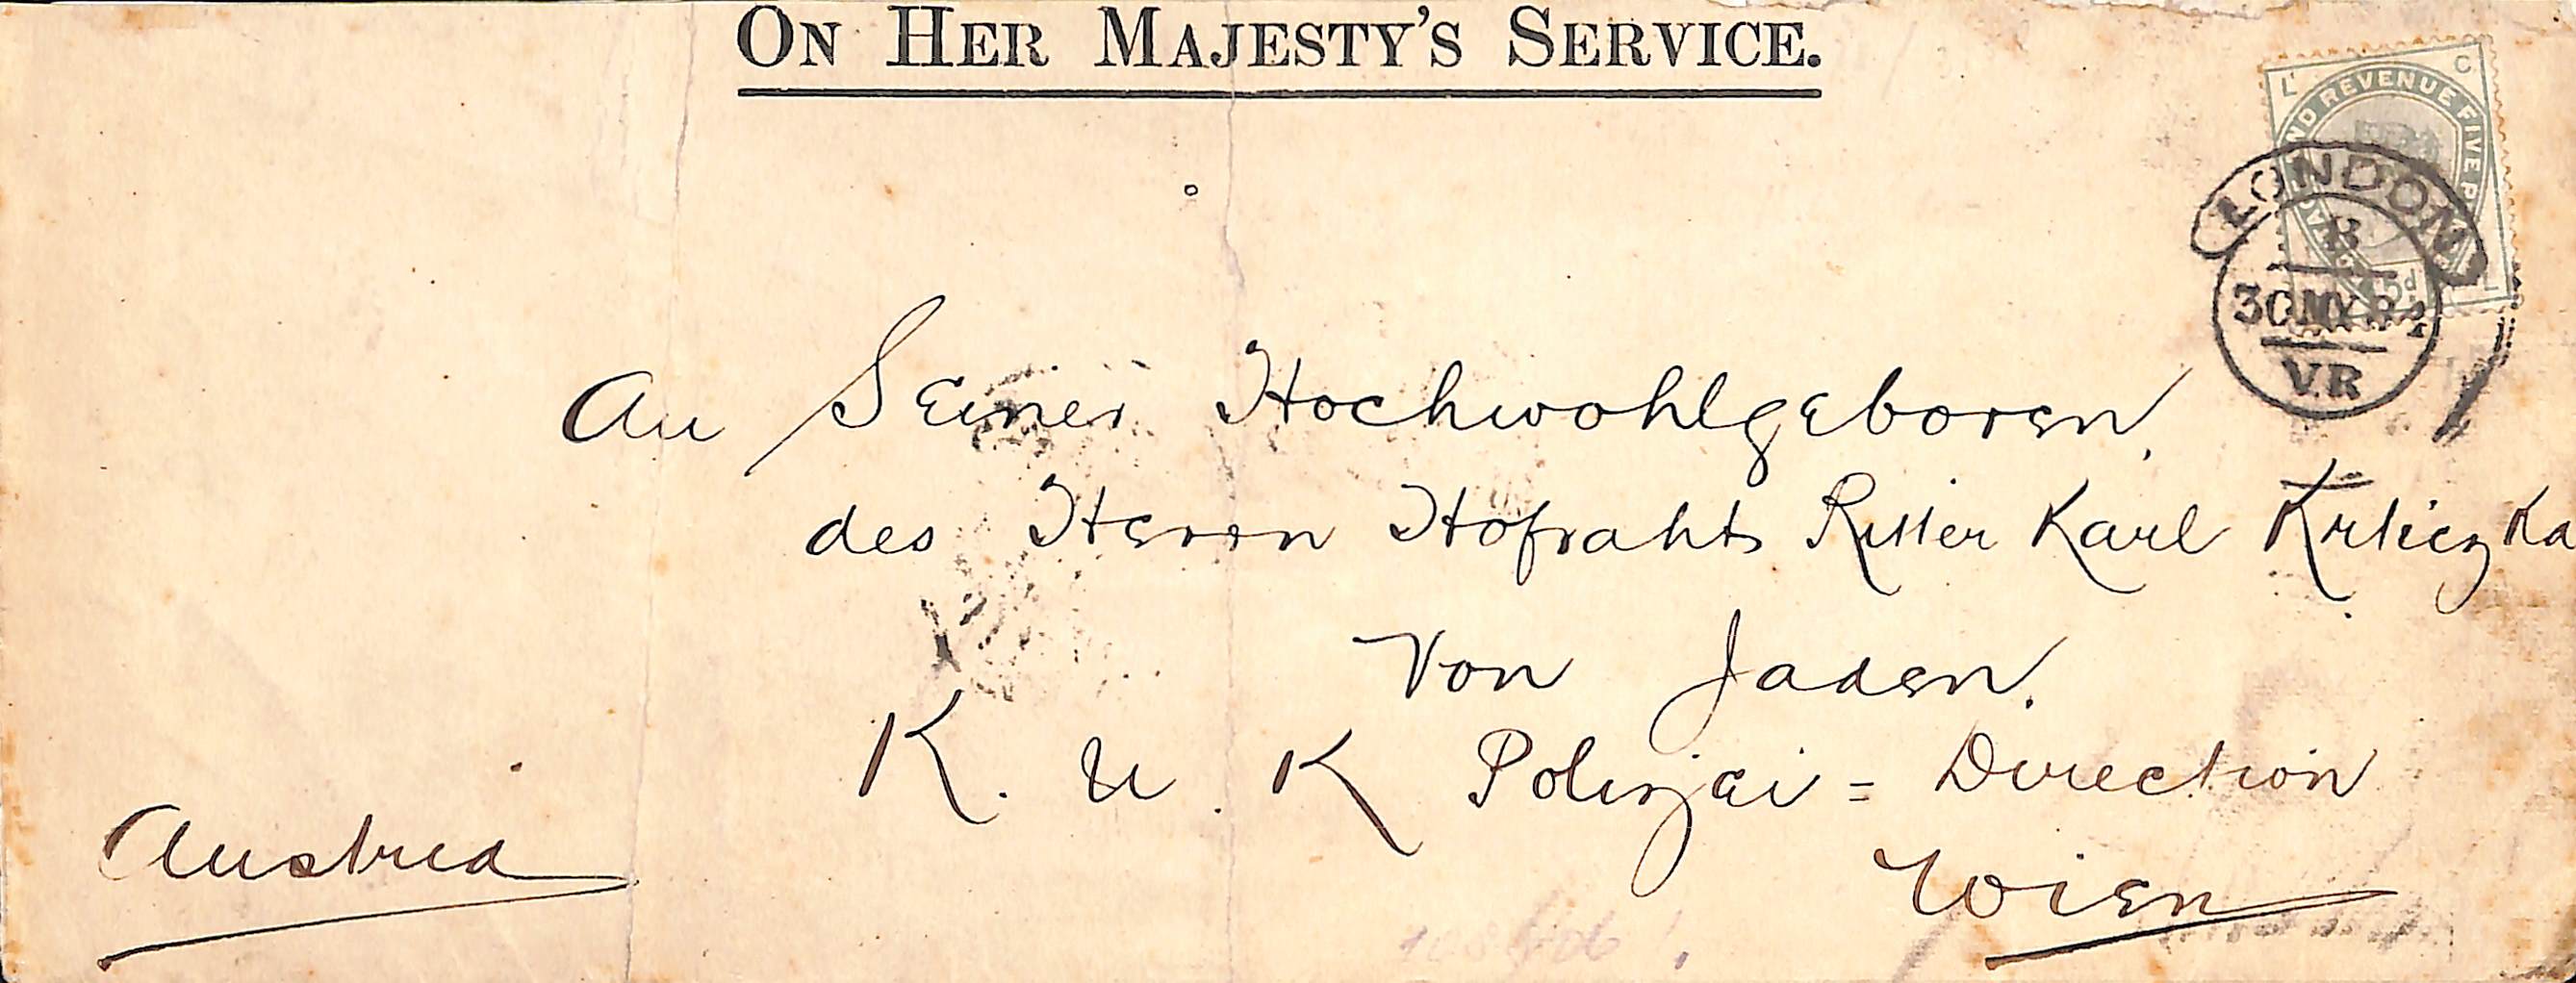 ON HER MAJESTY'S SERVICE.
L C
AND REVENUE FIVE P
5d
L
LONDON
B
30 MY 84
V.R
An Seiner Hochwohlgeboren,
des Herrn Hofrahts Ritter Karl Krticzka
Von Jaden.
K. u. K Polizei = Direction
Austria
Wien